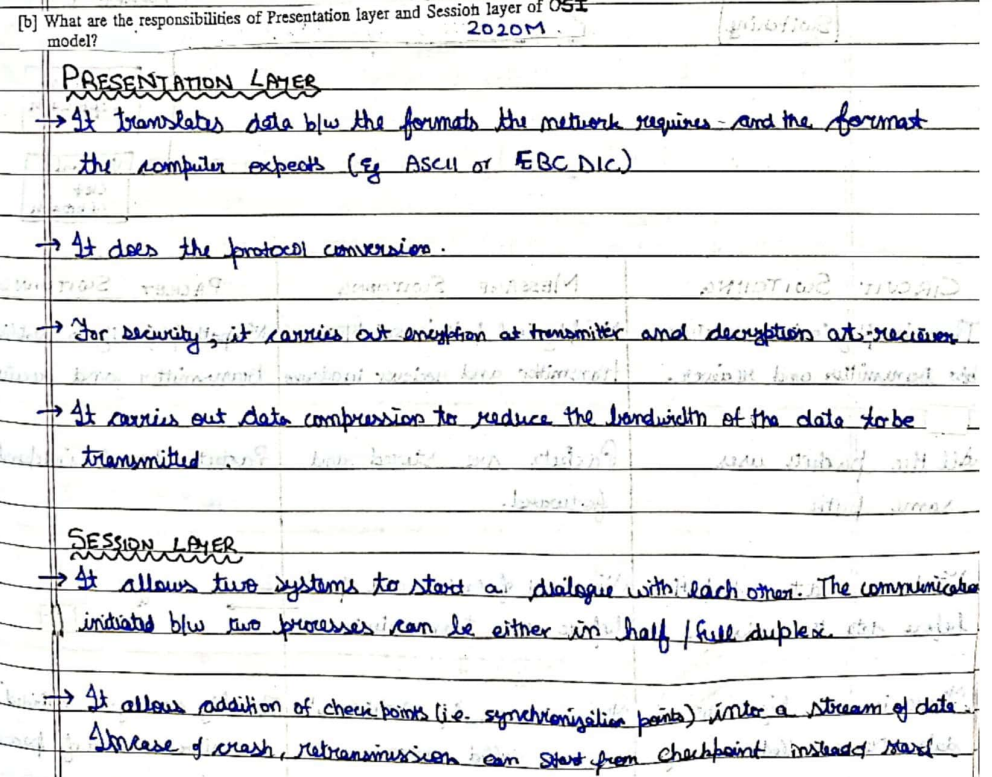 [b] What are the responsibilities of Presentation layer and Session layer of OSI
model? 2020M.
PRESENTATION LAYER
→ It translates data b/w the formats the network requires and the format
the computer expects (Eg ASCII or EBCDIC)
→ It does the protocol conversion.
→ For security, it carries out encyption at transmitter and decryption at reciever
→ It carries out data compression to reduce the bandwidth of the data to be
transmitted.
SESSION LAYER
→ It allows two systems to start a dialogue with each other. The communicatio
initiated b/w two processes can be either in half / full duplex.
→ It allows addition of check points (i.e. synchronization points) into a stream of data.
Incase of crash, retransmission can start from checkpoint instead